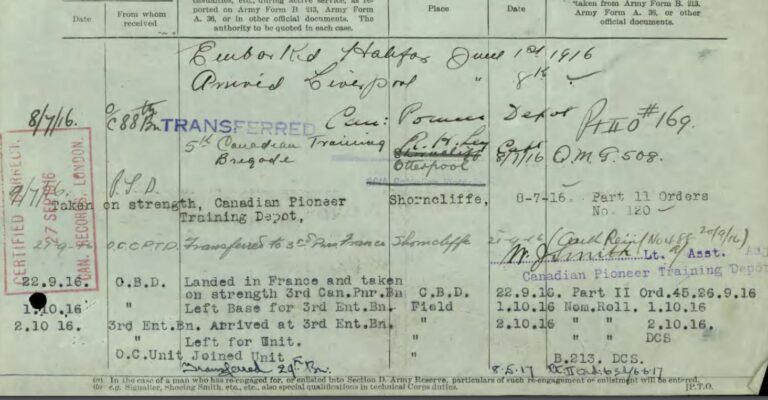 Date
From whom received
casualties, etc., during active service, as re-
ported on Army Form B 213, Army Form
A. 36, or in other official documents. The
authority to be quoted in each case.
Place
Date
taken from Army Form B. 213,
Army Form A. 36, or other
official documents.
Embarked Halifax June 1st 1916
Arrived Liverpool " 8th
8/7/16. O C 88th Bn. TRANSFERRED Can: Depot Pt II O #169.
5th Canadian Training Brigade Shorncliffe Otterpool 8/7/16 O.M.G. 508.
9/7/16. P.T.D.
Taken on strength, Canadian Pioneer Shorncliffe, 8-7-16. Part 11 Orders
Training Depot, No. 120
O.C.C.P.T.D. Transferred to 3rd Pnrs France Shorncliffe 20/9/16)
W. J. Smith Lt. Asst. Adj
Canadian Pioneer Training Depot
22.9.16. O.B.D. Landed in France and taken
on strength 3rd Can.Pnr.Bn C.B.D. 22.9.16. Part II Ord.45.26.9.16
1.10.16 " Left Base for 3rd Ent.Bn. Field 1.10.16 Nom.Roll. 1.10.16
2.10 16. 3rd Ent.Bn. Arrived at 3rd Ent.Bn. " 2.10.16 " " 2.10.16.
" Left for Unit. " " DCS
O.C.Unit Joined Unit " B.213. DCS.
Transferred 29th Bn. 8.5.17
CERTIFIED CORRECT.
27 SEP 1916
CAN. RECORDS, LONDON.
(a) In the case of a man who has re-engaged for, or enlisted into Section D. Army Reserve, particulars of such re-engagement or enlistment will be entered.
(b) e.g. Signaller, Shoeing Smith, etc., etc., also special qualifications in technical Corps duties.
[P.T.O.